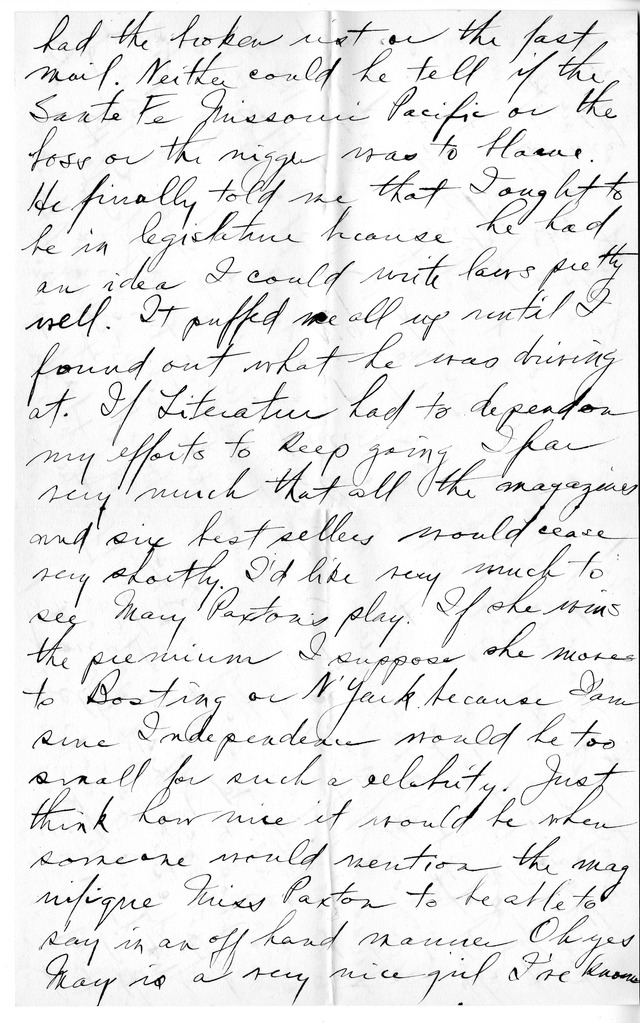 had the broken rist or the fast
mail. Neither could he tell if the
Sante Fe Missouri Pacific or the
boss or the nigger was to blame.
He finally told me that I ought to
be in legislature because he had
an idea I could write laws pretty
well. It puffed me all up until I
found out what he was driving
at. If Literature had to depend on
my efforts to keep going I fear
very much that all the magazines
and six best sellers would cease
very shortly. I'd like very much to
see Mary Paxton's play. If she wins
the premium I suppose she moves
to Bosting or N'Yark because I am
sure Independence would be too
small for such a celebrity. Just
think how nice it would be when
someone would mention the mag
nifique Miss Paxton to be able to
say in an off hand manner Oh yes
Mary is a very nice girl I've known